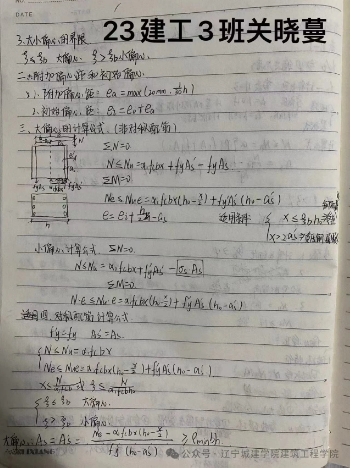 23建工3班关晓蔓
DATE
3.大小偏心的界限
ξ≤ξb 大偏心 ξ>ξb 小偏心
二.附加偏心距和初始偏心
1.附加偏心距: ea=max(20mm, h/30)
2.初始偏心距: ei=e0+ea
三.大偏心的计算公式.(非对称配筋)
ΣN=0
N≤Nu=α1fcbx+fy'As'-fyAs
ΣM=0
Ne≤Nue=α1fcbx(h0-x/2)+fy'As'(h0-as')
e=ei+h/2-as 适用条件 { x≤ξbh0
x>2as'
小偏心计算公式 ΣN=0
N≤Nu=α1fcbx+fy'As'-σsAs
ΣM=0
N·e≤Nu·e=α1fcbx(h0-x/2)+fy'As'(h0-as')
四.对称配筋计算公式
fy=fy' As'=As
{ N≤Nu=α1fcbx
Ne≤Nue=α1fcbx(h0-x/2)+fy'As'(h0-as')
{ ξ≤ξb 大偏心
ξ>ξb 小偏心
大偏心: As=As'= Ne-α1fcbx(h0-x/2) / fy'(h0-as') ≥ρminbh
公众号·辽宁城建学院建筑工程学院